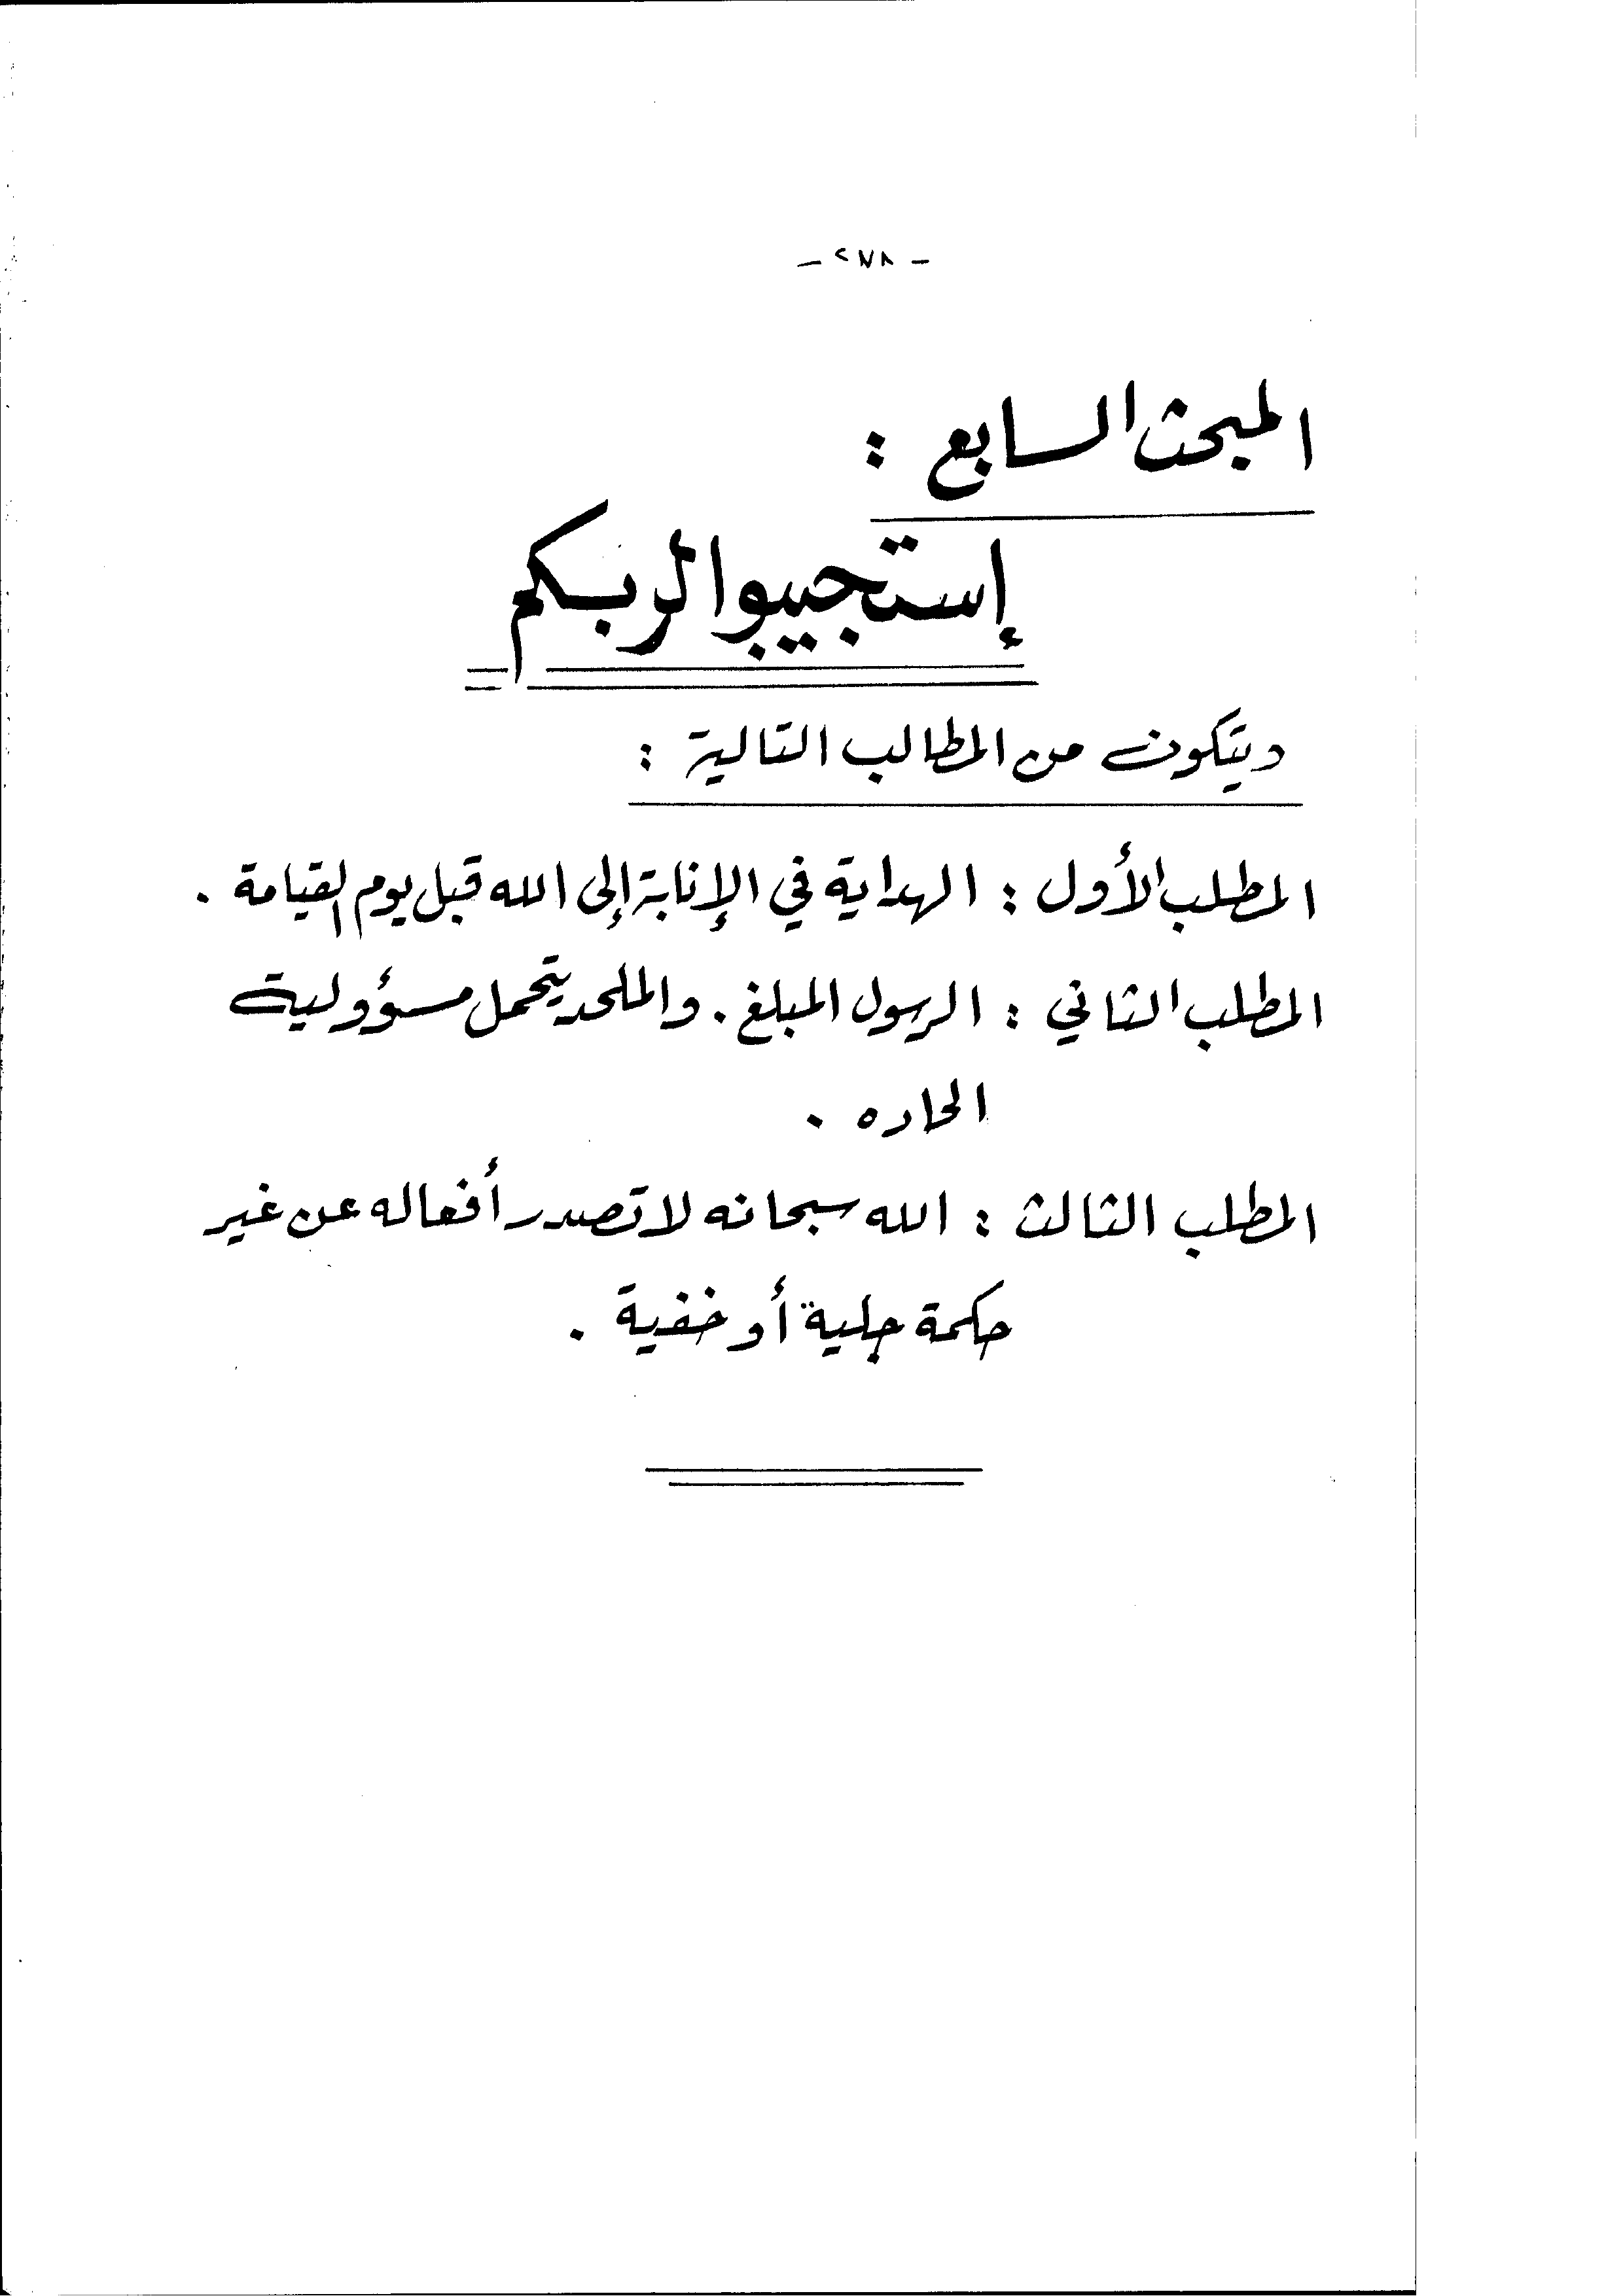 - ٢٧٨ -
المبحث السابع :
إستجيبوا لربكم
ويتكون من المطالب التالية :
المطلب الأول : الهداية في الإنابة إلى الله قبل يوم القيامة .
المطلب الثاني : الرسول المبلغ . والملحد يتحمل مسؤولية
الحاده .
المطلب الثالث : الله سبحانه لا تصدر أفعاله عن غير
حكمة جلية أو خفية .